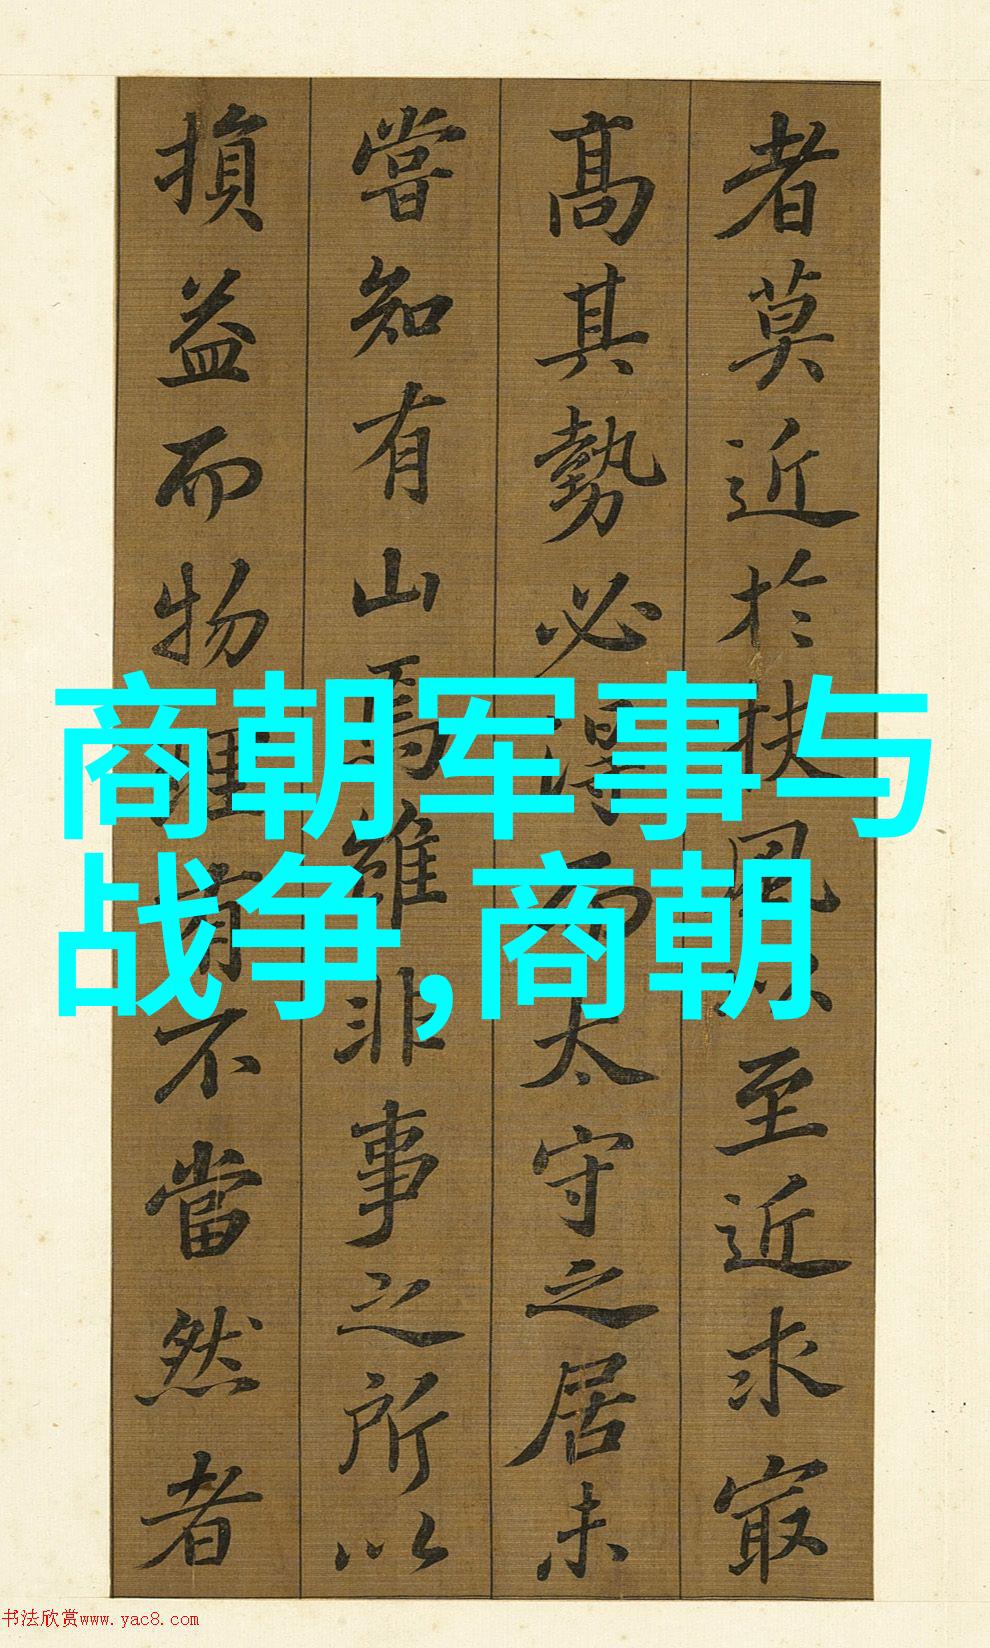 者莫近於扶風以至近求冣
高其勢必得而太守之居未
嘗知有山焉雖非事之所以
損益而物理有不當然者
商朝军事与
战争,商朝
书法欣赏www.yac8.com